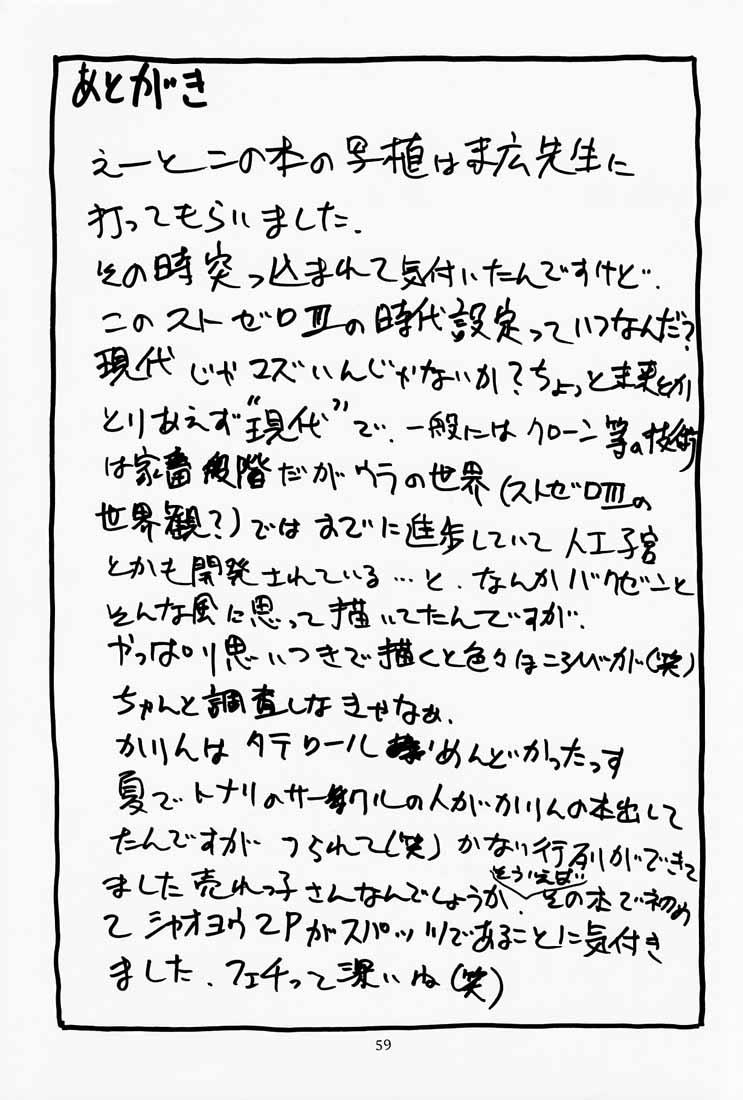 あとがき
えーとこの本の写植はま広先生に
打ってもらいました.
その時突っ込まれて気付いたんですけど.
このストゼロⅢの時代設定っていつなんだ?
現代じゃマズいんじゃないか?ちょっと未来とか
とりあえず“現代”で.一般にはクローン等の技術
は家畜段階だがウラの世界(ストゼロⅢの
世界観?)ではすでに進歩していて人工子宮
とかも開発されている…と.なんかバクゼンと
そんな風に思って描いてたんですが.
やっぱり思いつきで描くと色々ほころびが(笑)
ちゃんと調査しなきゃなぁ.
かりんはタテロールめんどかったっす
夏でトナリのサークルの人がかりんの本出して
たんですが つられて(笑)かなり行列ができて
ました売れっ子さんなんでしょうか.そういえばその本で初め
て シャオヨウ2Pがスパッツであることに気付き
ました.フェチって深いね(笑)
59